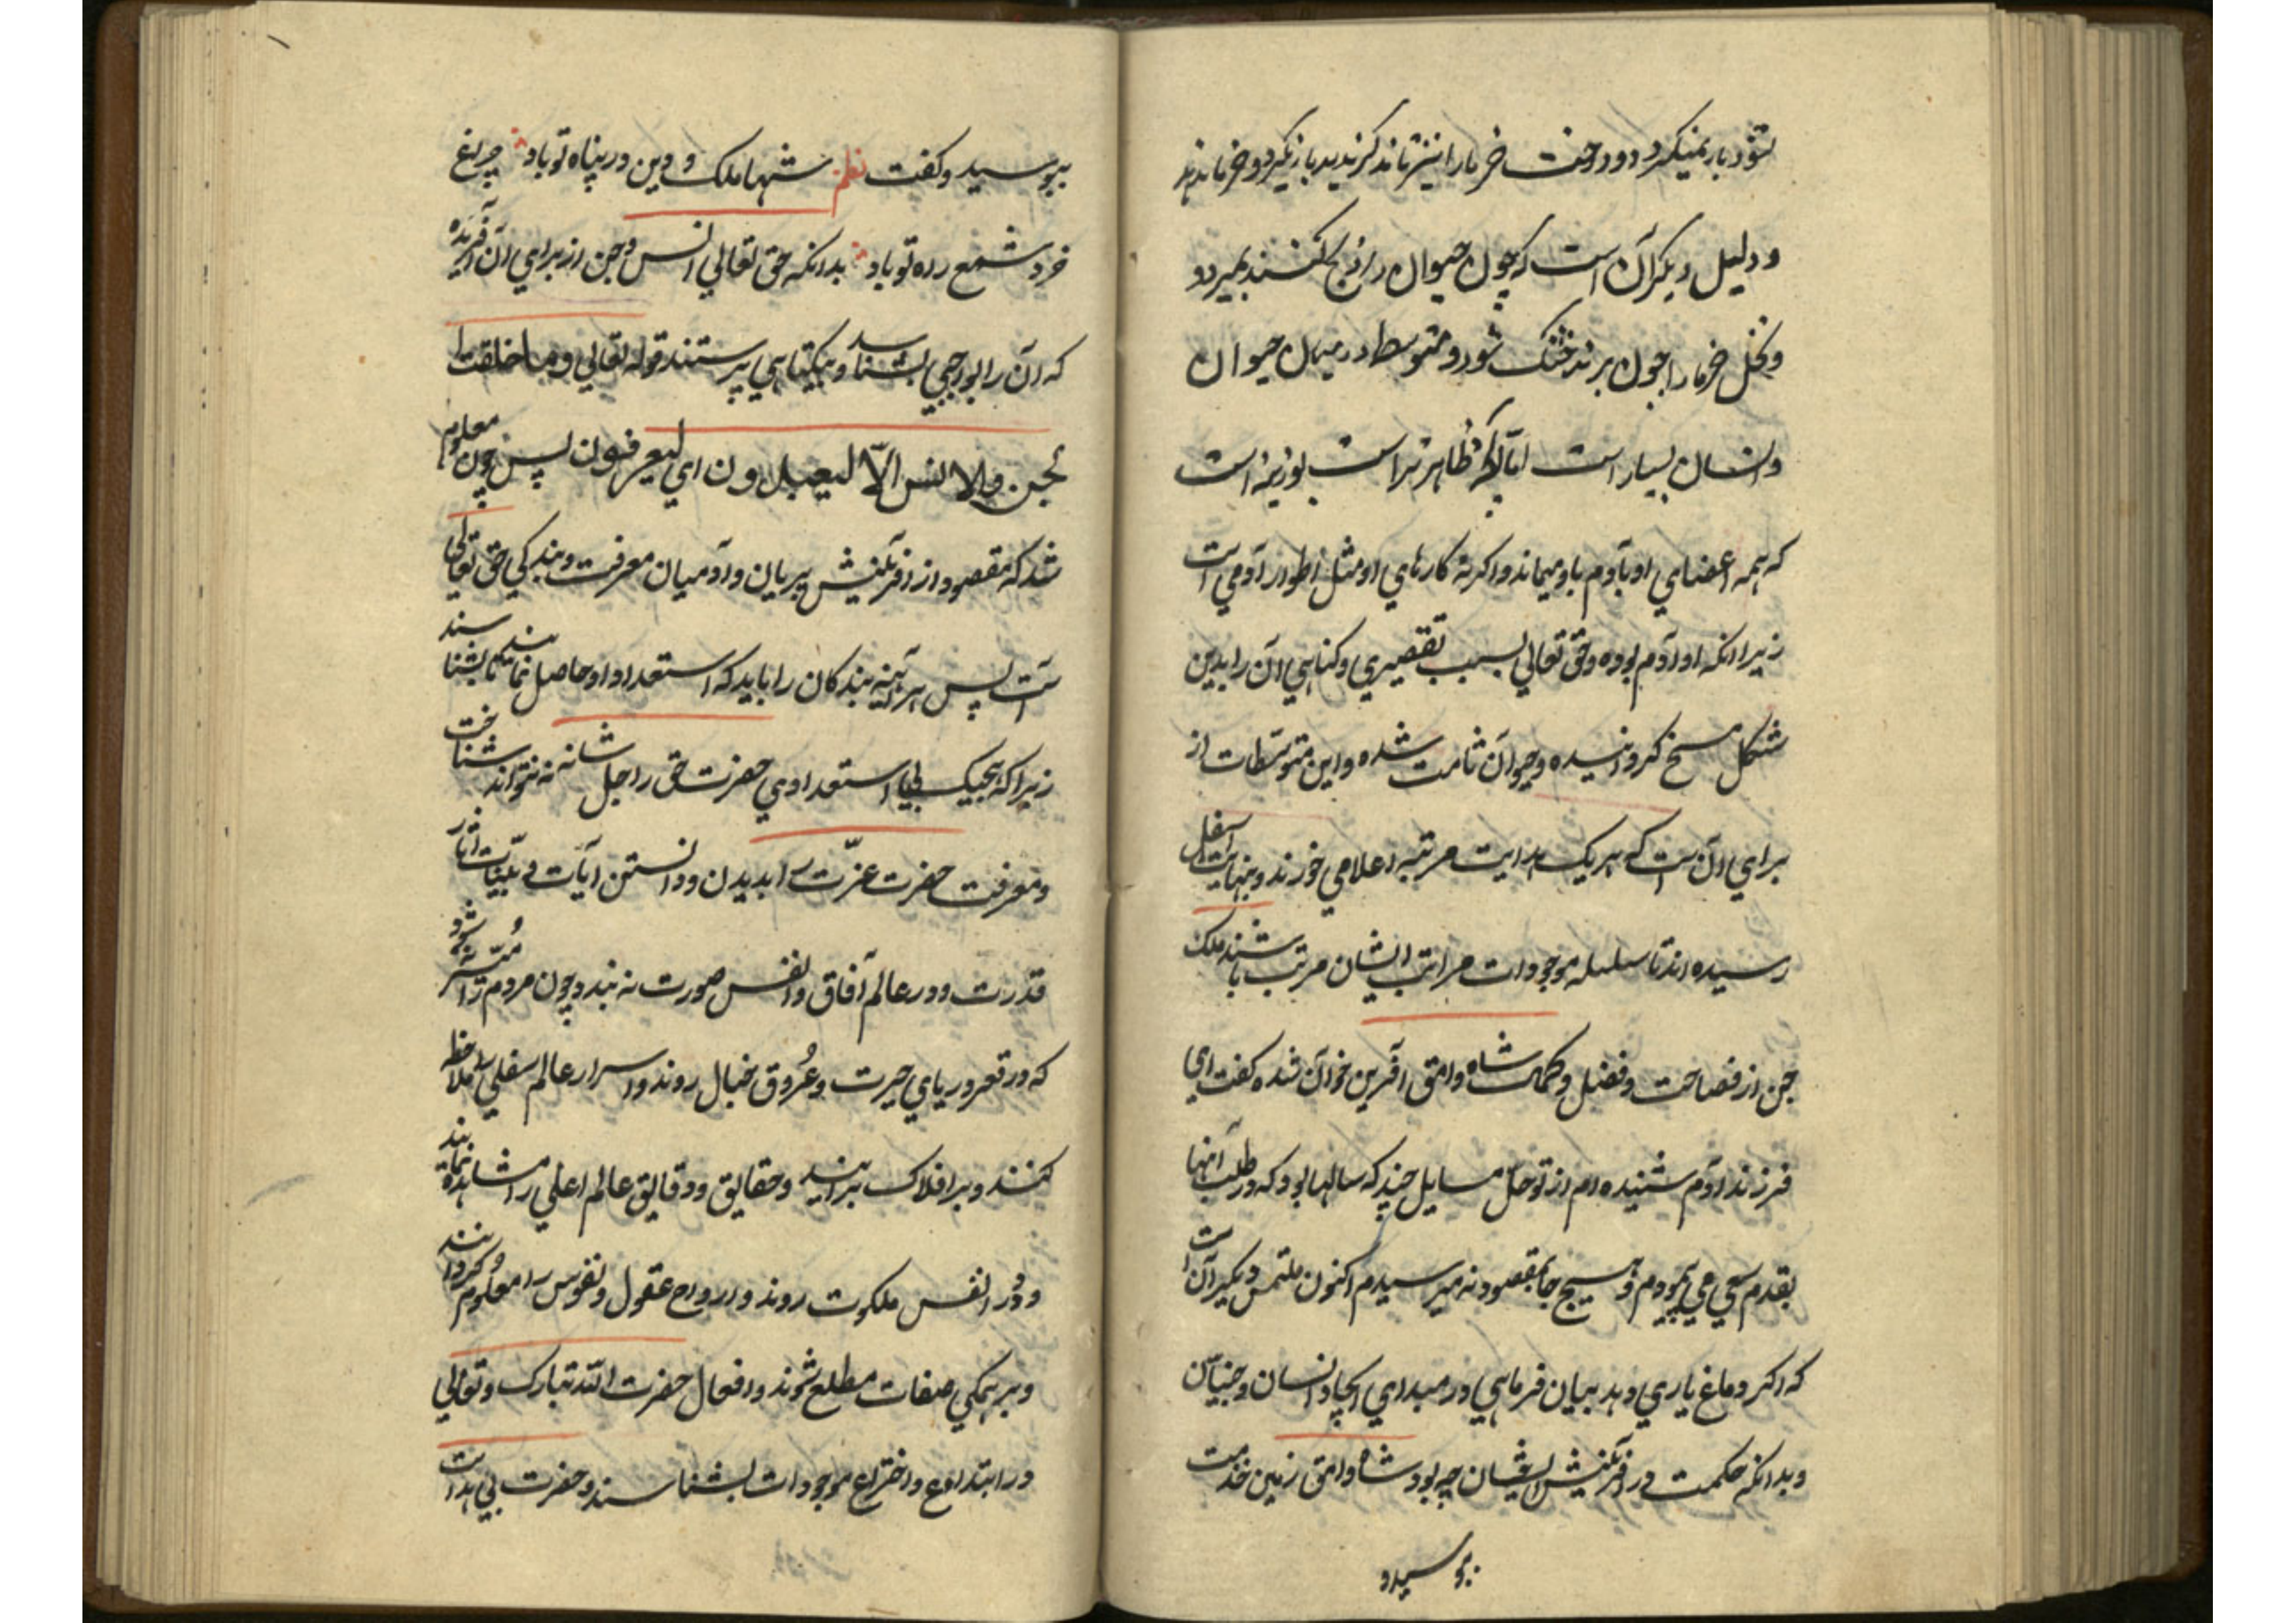 نشود بار نمیکرد و درخت خرما را نیز تا نر کرندید بار نکیرد و خرما ندهد
و دلیل دیکر آن است که چون حیوان را ذبح کنند بمیرد
و نخل خرما را چون برند خشک شود و متوسط در میان حیوان
و انسان بسیار است اما آنکه ظاهرتر است بوزینه است
که همه اعضای او بآدم باو میماند و اکثر کارهای او مثل اطوار آدمی است
زیرا انکه او آدم بوده و حق تعالی بسبب تقصیری و کناهی آن را بدین
شکل مسخ کردانیده و حیوان شده و این متوسطات از
برای آن است که هر یک بدایت مرتبه اعلا می خورند و بنهایت اسفل
رسیده اند تا سلسله موجودات مراتب ایشان مرتب باشند ملک
جن از فصاحت و فضل و کمال شاه وامق آفرین خوان شده کفت ای
فرزند آدم شنیده ام از تو حل مسایل چند که سالها بود که در طلب آنها
بقدم سعی می پیمودم و هیچ جا بمقصود نه میرسیدم اکنون ملتمس دیکر آن است
که اکر دماغ یاری دهد بیان فرمایی در مبدای ایجاد انسان و جنیان
و بدانکه حکمت در آفرینش ایشان چه بود شاه وامق زمین خدمت
بوسید و
ببوسید و کفت نظم شها ملک و دین در پناه تو باد چراغ
خرد شمع ره تو باد بدانکه حق تعالی انس و جن از برای آن آفریده
که آن را بواجبی بشناسد و بیکتاهی پرستند قوله تعالی و ما خلقت ا
لجن والانس الّا لیعبدون ای لیعرفون پس چون معلوم
شد که مقصود از آفرینش پریان و آدمیان معرفت و بندکی حق تعالی
است پس هر آینه بندکان را باید که استعداد او حاصل نمایند تا بشناسند
زیرا که هیچیک بی استعدادی حضرت حق را جل شانه نه تواند شناخت
و معرفت حضرت عزّت را بدیدن و دانستن آیات و بیّنات آثار
قدرت و در عالم آفاق و انفس صورت نه بندد چون مردم را میسّر شود
که در قعر دریای حیرت و عُروق خیال روند و اسرار عالم سفلی را ملاحظه
کنند و بر افلاک برایند و حقایق و دقایق عالم اعلی را مشاهده نمایند
و در انفس ملکوت روند و ارواح عقول و نفوس را معلوم کردانند
و بر همکی صفات مطلع شوند و افعال حضرت الله تبارک و تعالی
در ابتداع و اختراع موجودات بشناسند و حضرت بی هداست